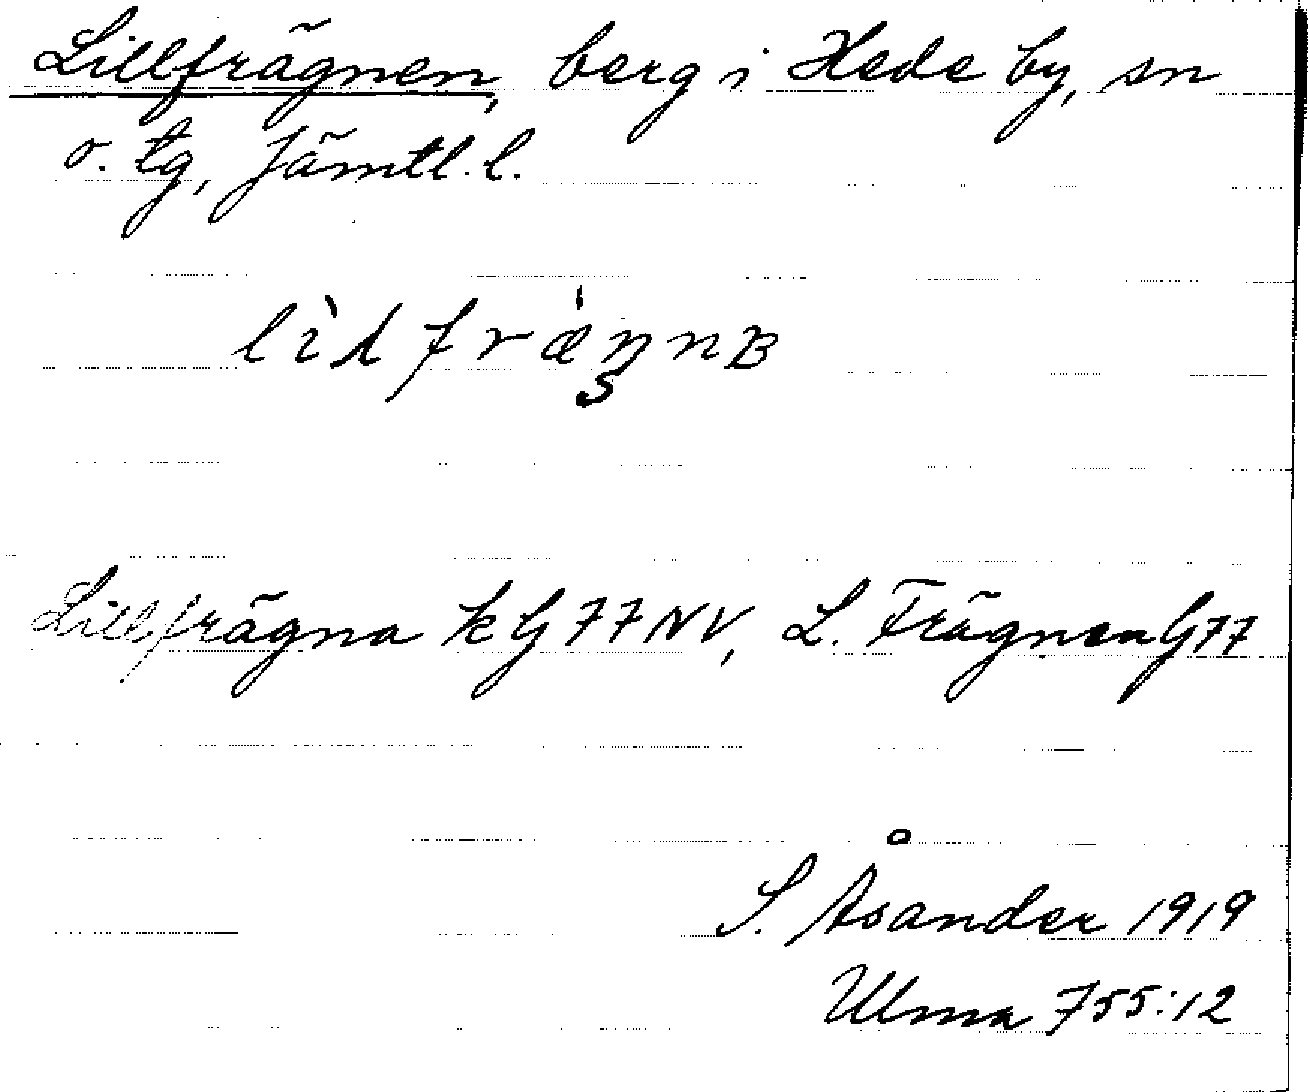 Lillfrägnen, berg i Hede by, sn
o. tg, Jämtl. l.
Lillfrägna kG 77 NV, L. Frägnen G 77
S. Åsander 1919
Ulma 755:12